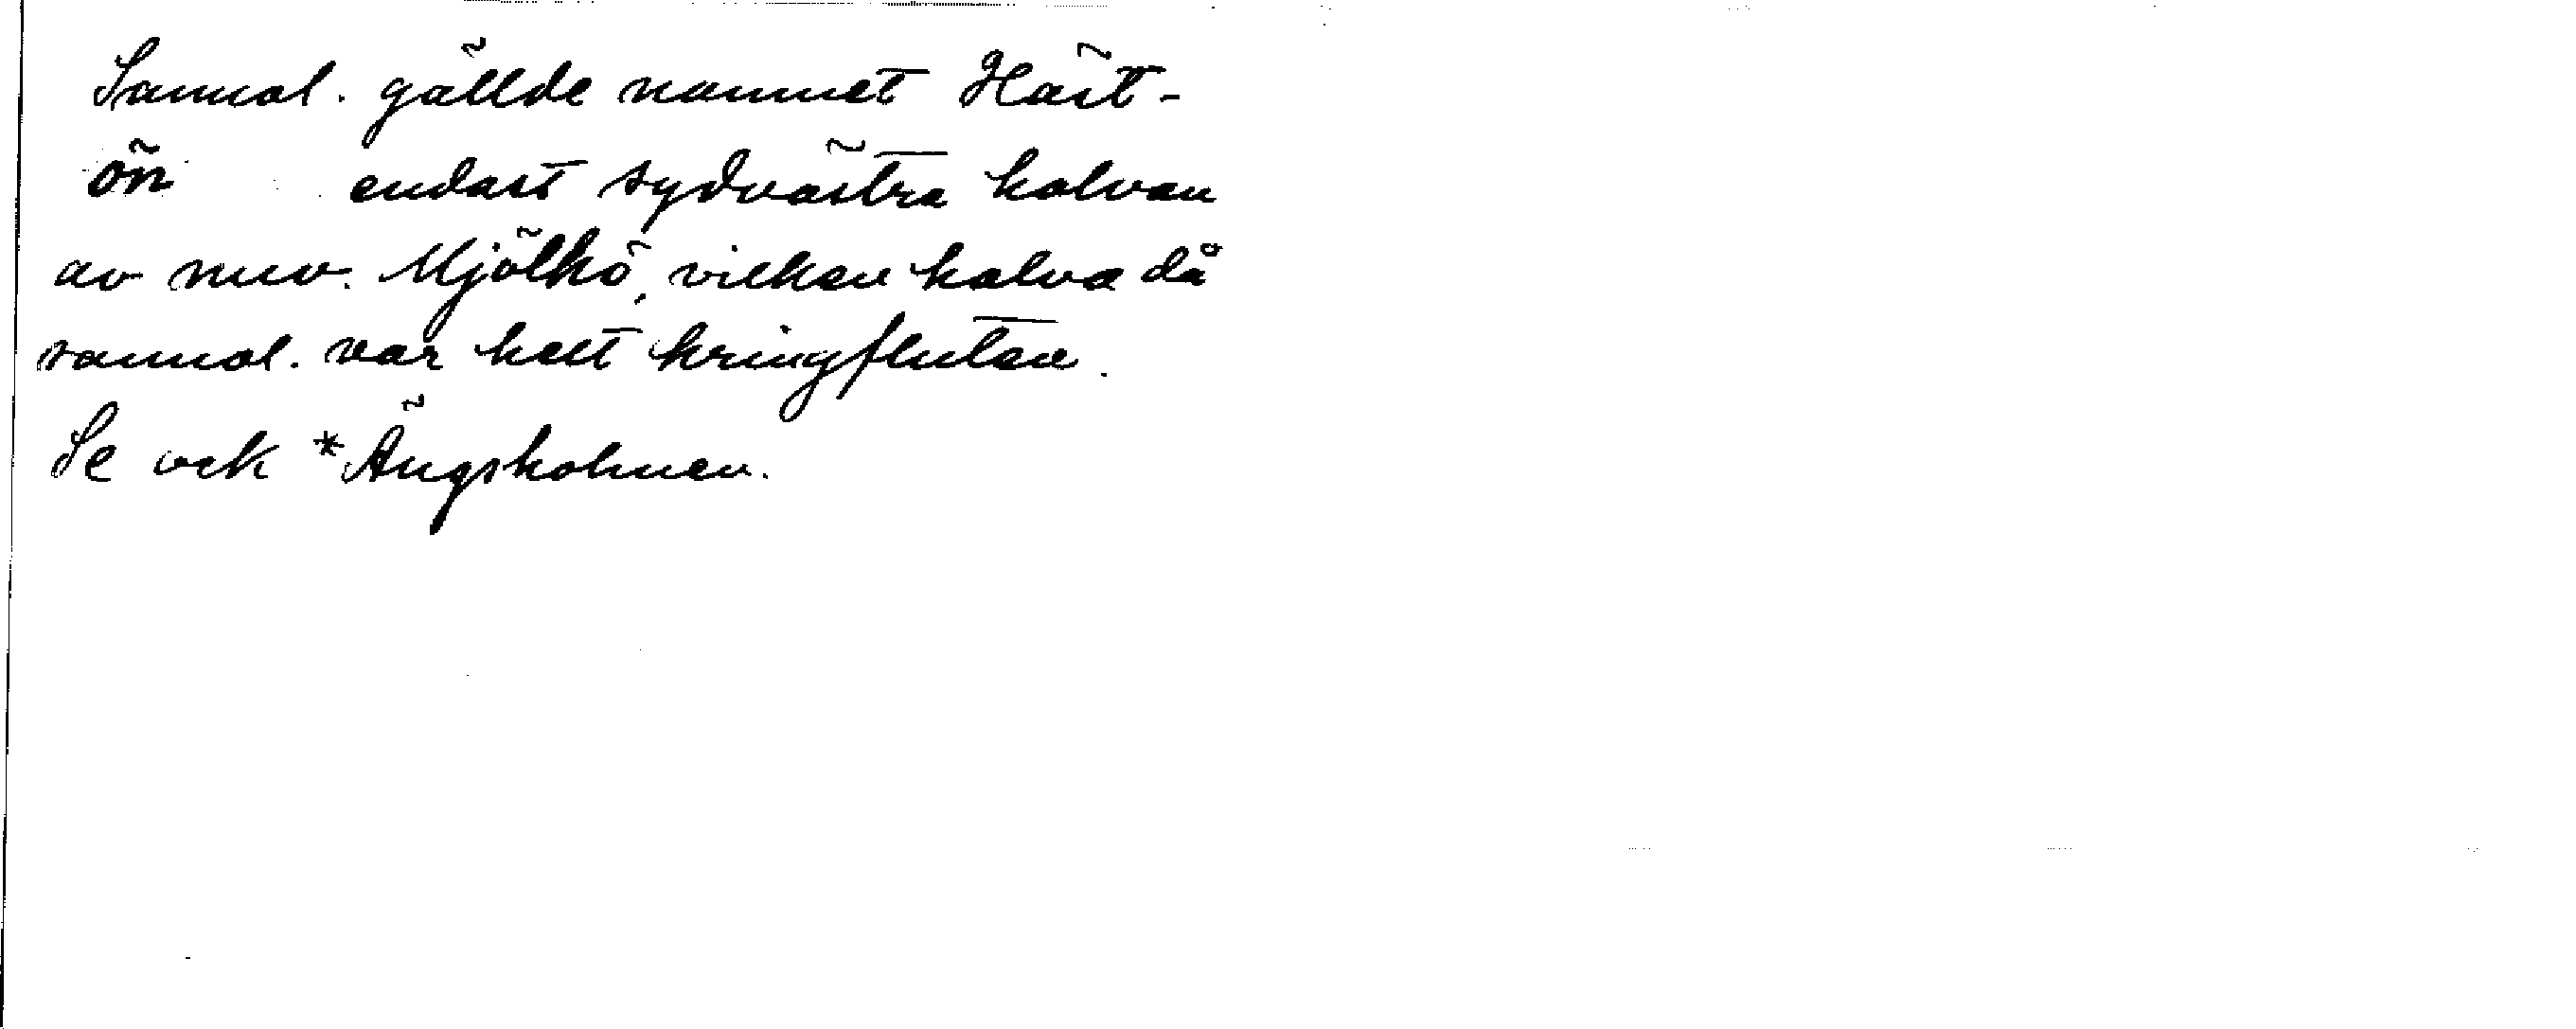 Sannol. gällde namnet Häst-
ön endast sydvästra halvan
av nuv. Mjölkö, vilken halva då
sannol. var helt kringfluten.
Se ock *Ängsholmen.